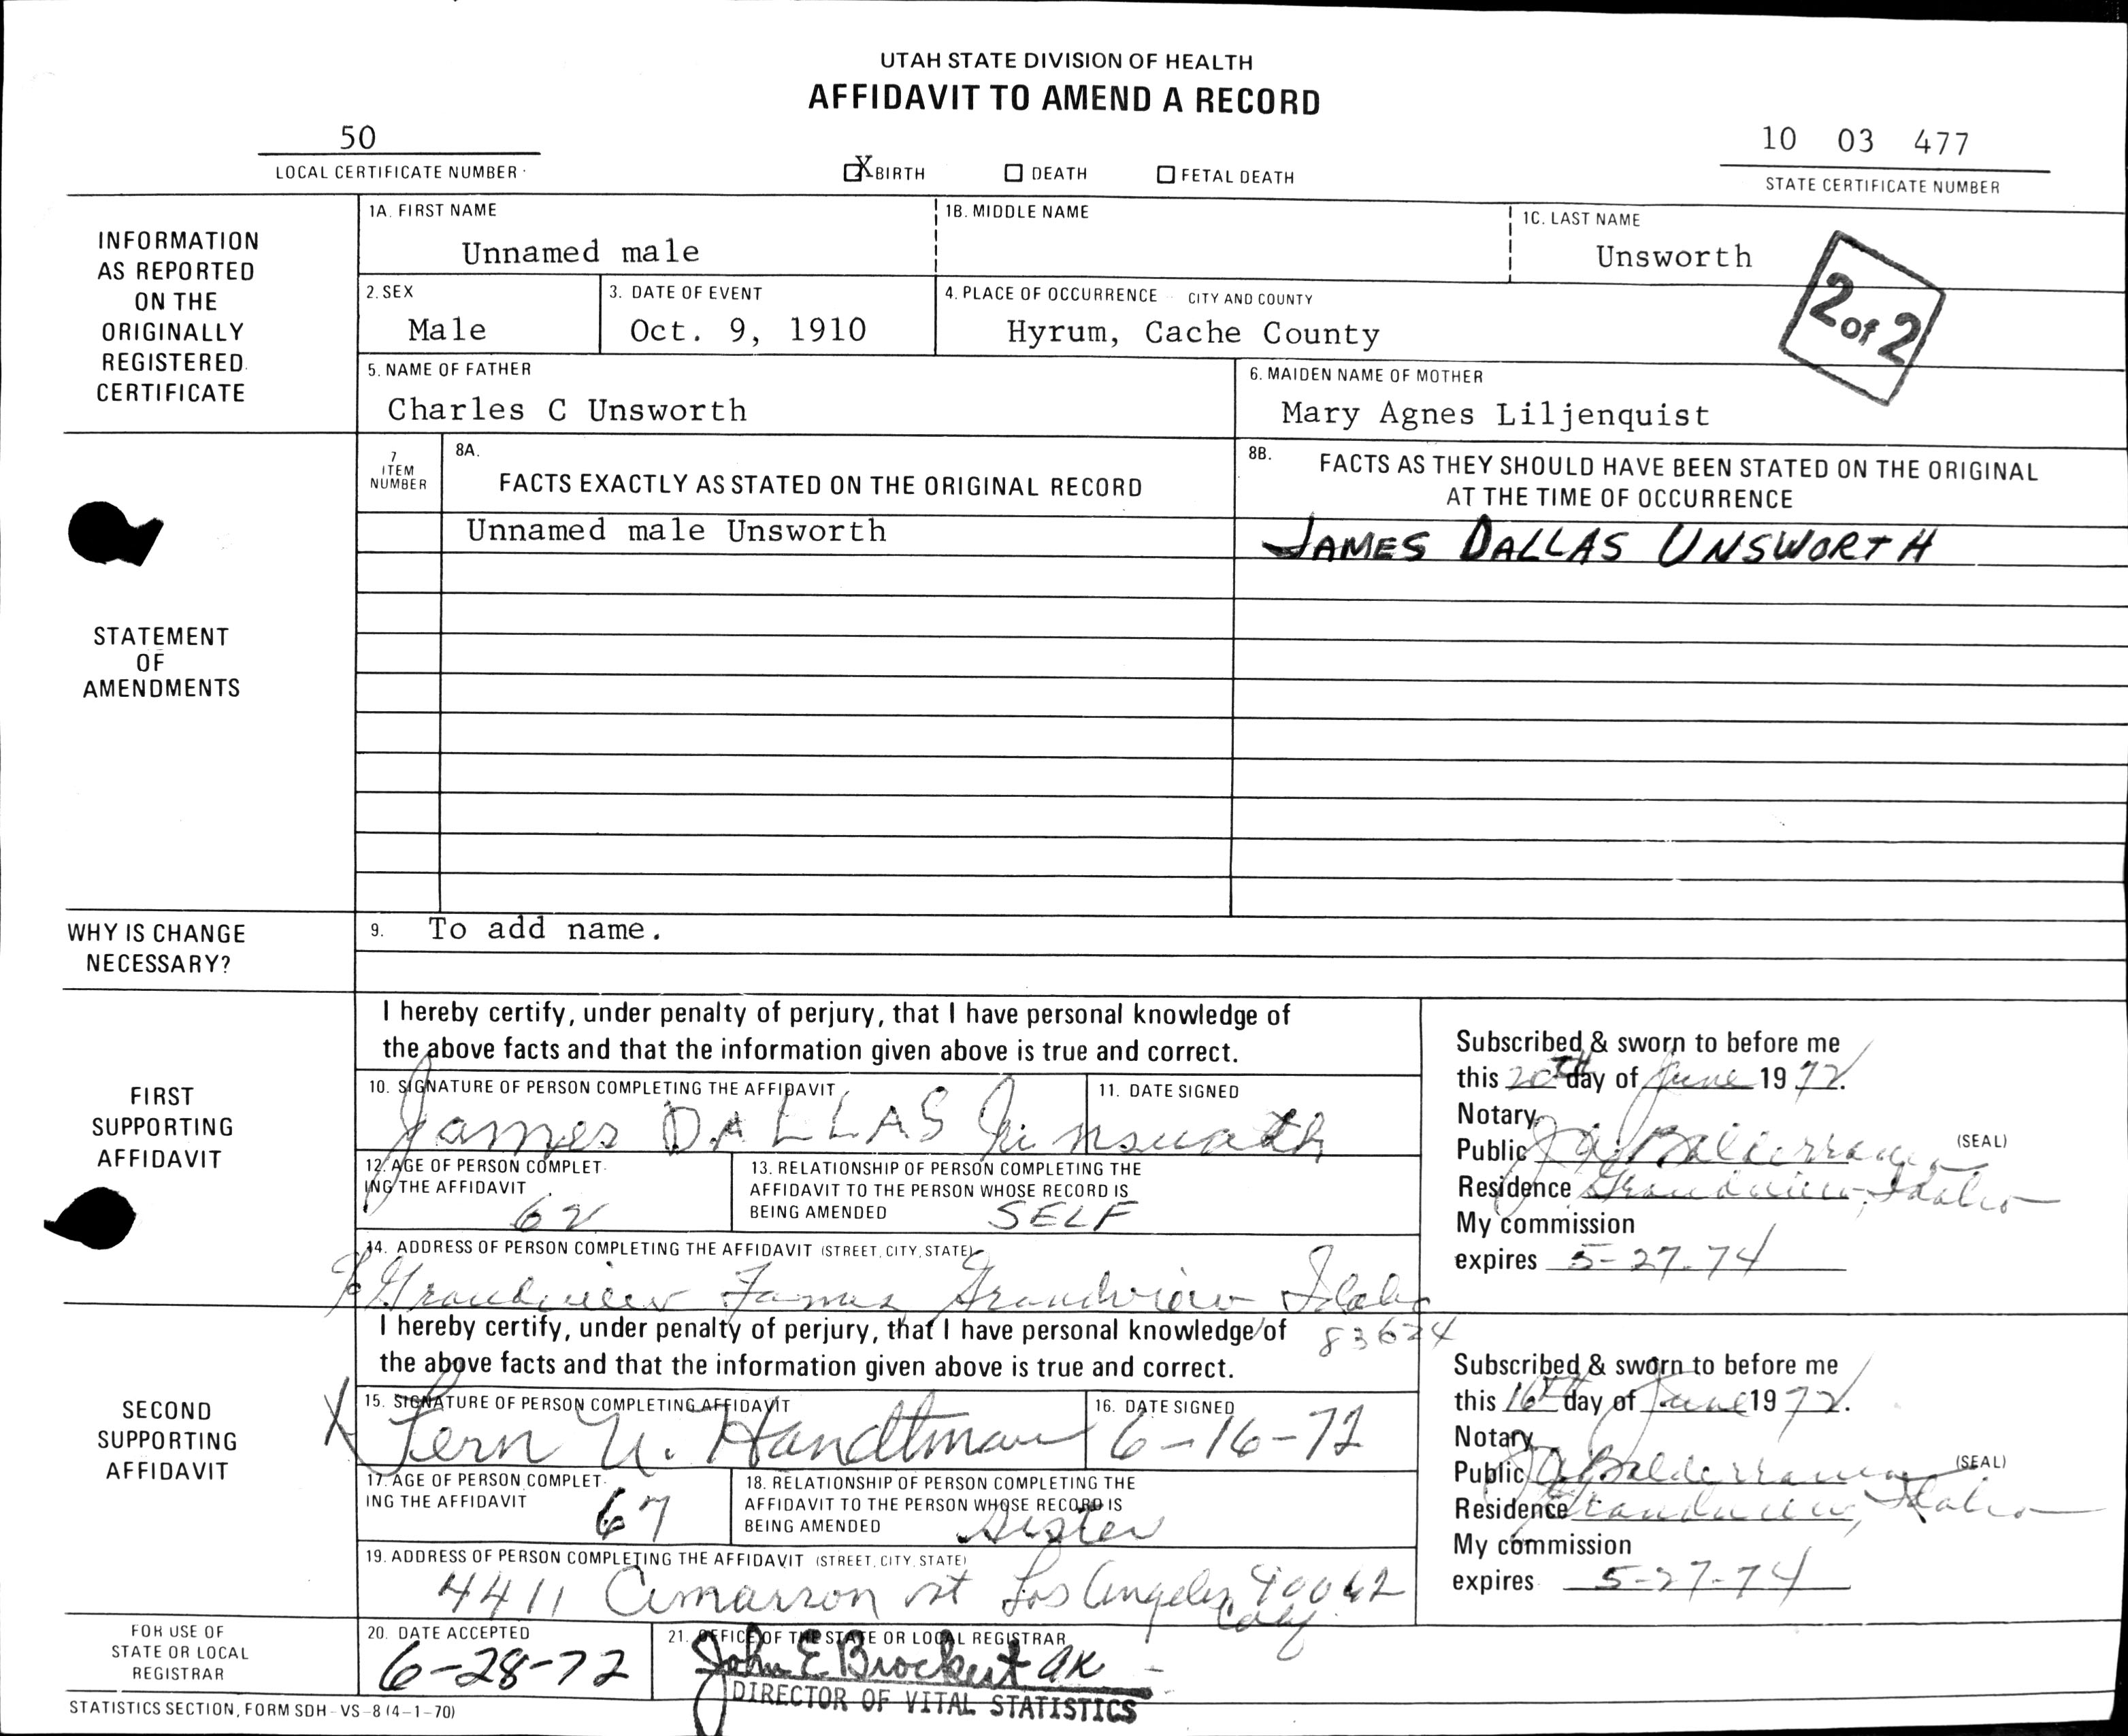 UTAH STATE DIVISION OF HEALTH
AFFIDAVIT TO AMEND A RECORD
50
LOCAL CERTIFICATE NUMBER
X BIRTH
DEATH
FETAL DEATH
10 03 477
STATE CERTIFICATE NUMBER
INFORMATION
AS REPORTED
ON THE
ORIGINALLY
REGISTERED
CERTIFICATE
1A. FIRST NAME
Unnamed male
1B. MIDDLE NAME
1C. LAST NAME
Unsworth
2 of 2
2. SEX
Male
3. DATE OF EVENT
Oct. 9, 1910
4. PLACE OF OCCURRENCE CITY AND COUNTY
Hyrum, Cache County
5. NAME OF FATHER
Charles C Unsworth
6. MAIDEN NAME OF MOTHER
Mary Agnes Liljenquist
STATEMENT
OF
AMENDMENTS
7
ITEM
NUMBER
8A.
FACTS EXACTLY AS STATED ON THE ORIGINAL RECORD
8B. FACTS AS THEY SHOULD HAVE BEEN STATED ON THE ORIGINAL
AT THE TIME OF OCCURRENCE
Unnamed male Unsworth
JAMES DALLAS UNSWORTH
WHY IS CHANGE
NECESSARY?
9. To add name.
FIRST
SUPPORTING
AFFIDAVIT
I hereby certify, under penalty of perjury, that I have personal knowledge of
the above facts and that the information given above is true and correct.
10. SIGNATURE OF PERSON COMPLETING THE AFFIDAVIT
James DALLAS Unsworth
11. DATE SIGNED
12. AGE OF PERSON COMPLET-
ING THE AFFIDAVIT
62
13. RELATIONSHIP OF PERSON COMPLETING THE
AFFIDAVIT TO THE PERSON WHOSE RECORD IS
BEING AMENDED
SELF
14. ADDRESS OF PERSON COMPLETING THE AFFIDAVIT (STREET, CITY, STATE)
% Grandview Farms, Grandview Idaho
83624
Subscribed & sworn to before me
this 20TH day of June 1972.
Notary
Public J A Balderrama (SEAL)
Residence Grandview, Idaho
My commission
expires 5-27-74
SECOND
SUPPORTING
AFFIDAVIT
I hereby certify, under penalty of perjury, that I have personal knowledge of
the above facts and that the information given above is true and correct.
15. SIGNATURE OF PERSON COMPLETING AFFIDAVIT
X Fern U. Handtman
16. DATE SIGNED
6-16-72
17. AGE OF PERSON COMPLET-
ING THE AFFIDAVIT
67
18. RELATIONSHIP OF PERSON COMPLETING THE
AFFIDAVIT TO THE PERSON WHOSE RECORD IS
BEING AMENDED
Sister
19. ADDRESS OF PERSON COMPLETING THE AFFIDAVIT (STREET, CITY, STATE)
4411 Cimarron st Los Angeles 90062
Calif.
Subscribed & sworn to before me
this 16TH day of June 1972.
Notary
Public J A Balderrama (SEAL)
Residence Grandview, Idaho
My commission
expires 5-27-74
FOR USE OF
STATE OR LOCAL
REGISTRAR
20. DATE ACCEPTED
6-28-72
21. OFFICE OF THE STATE OR LOCAL REGISTRAR
John E Brockert
DIRECTOR OF VITAL STATISTICS
STATISTICS SECTION, FORM SDH-VS-8 (4-1-70)